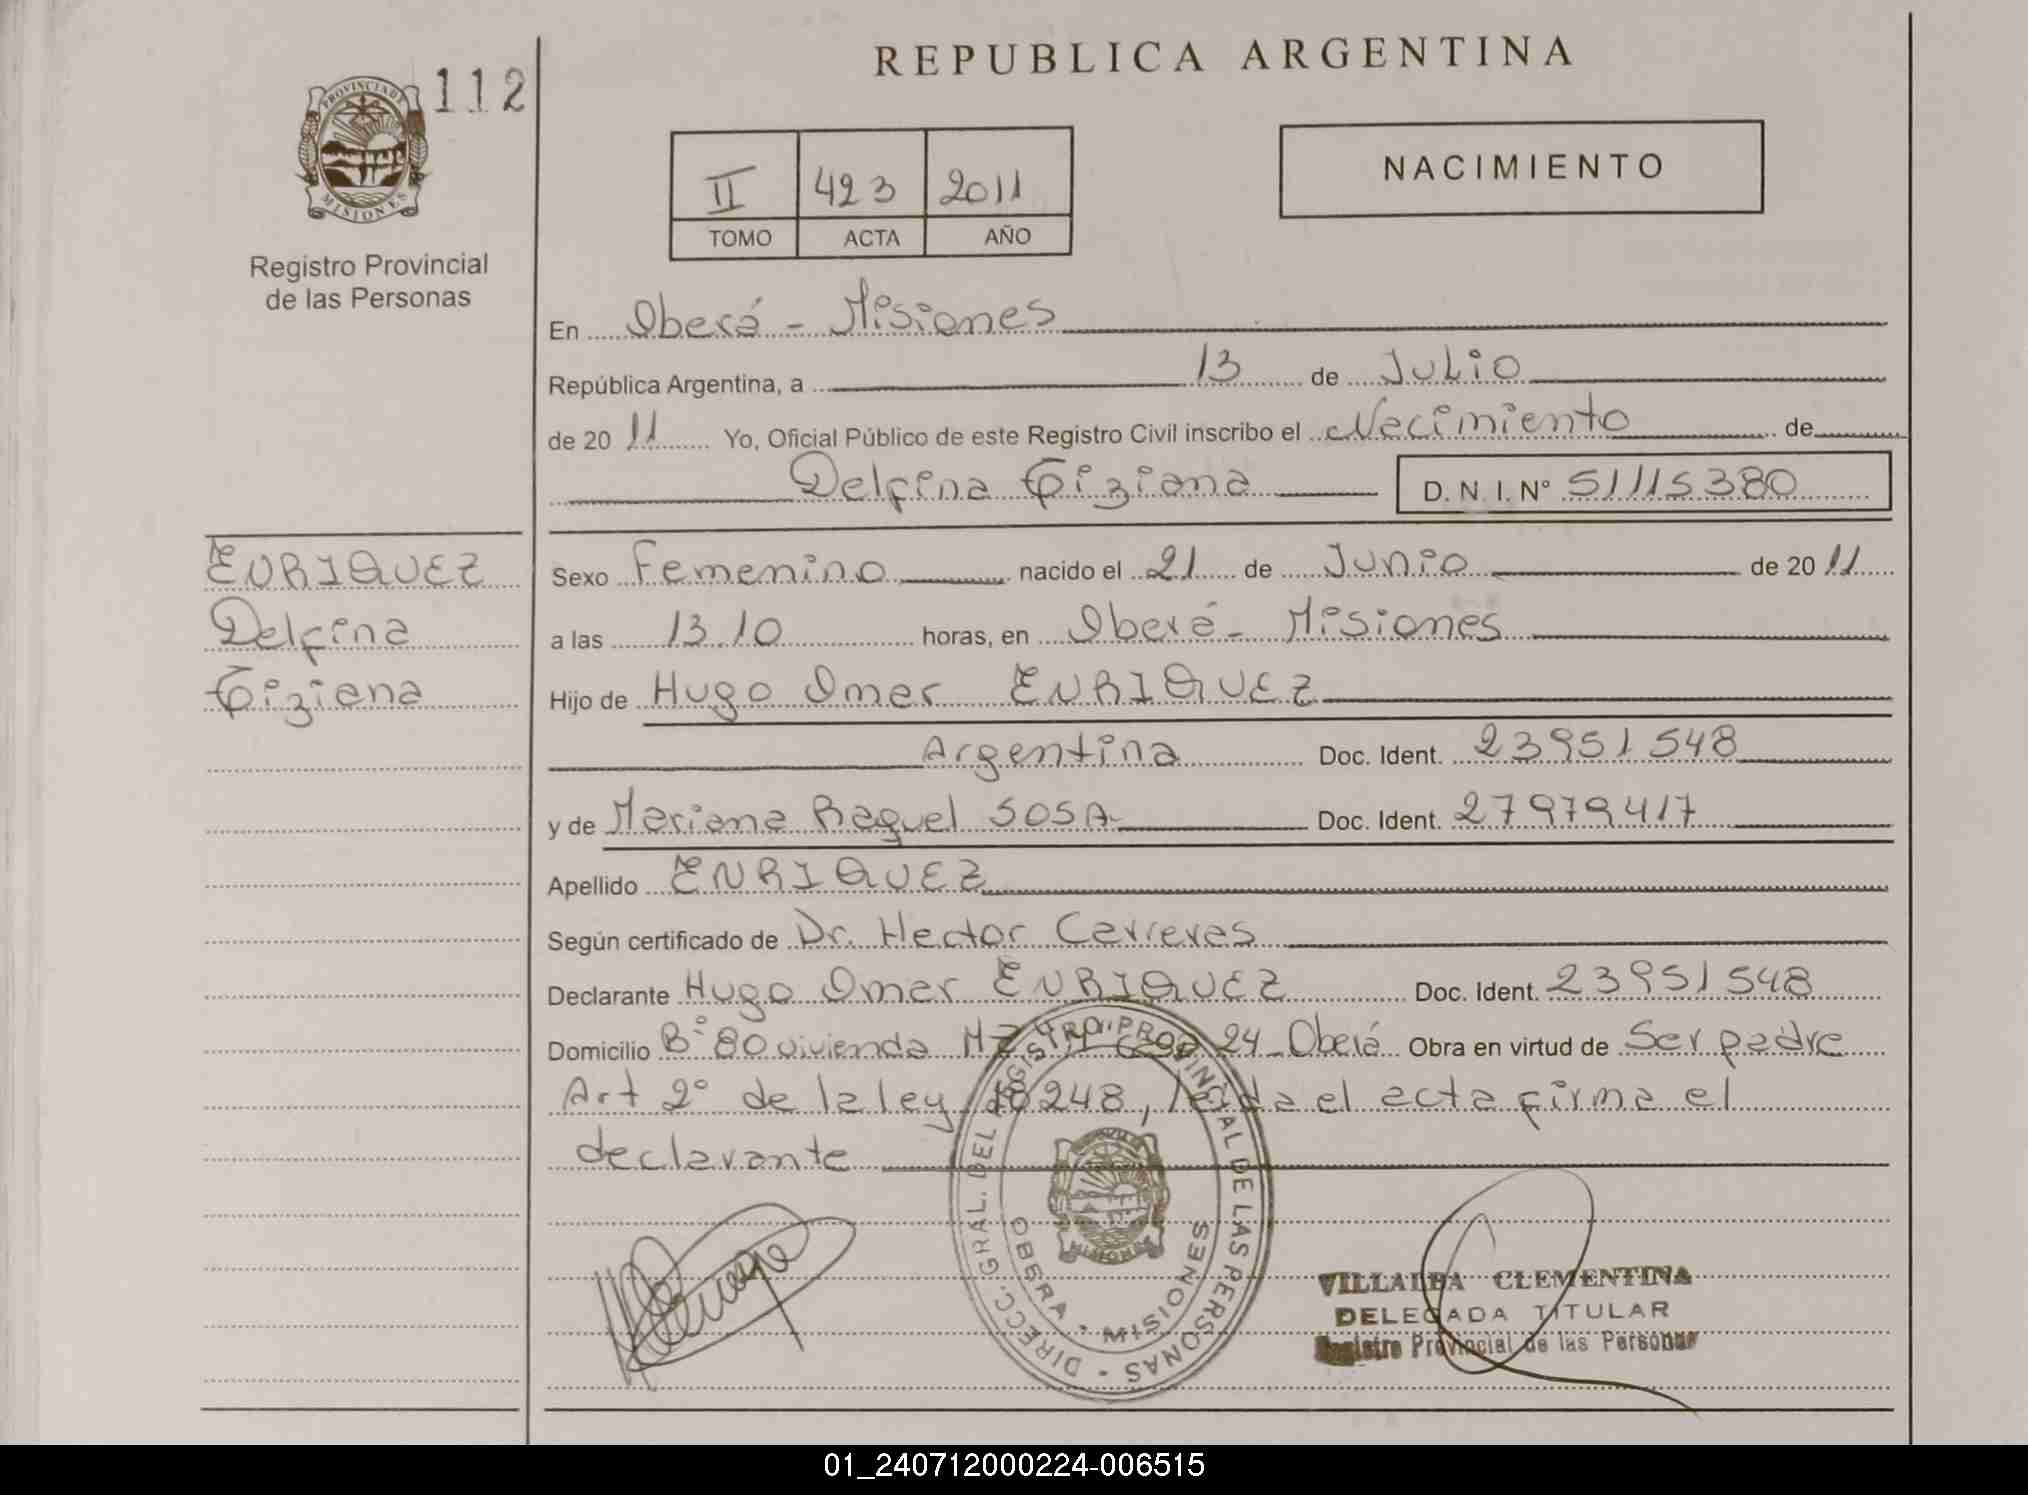 112
REPUBLICA ARGENTINA
PROVINCIA DE
MISIONES
Registro Provincial
de las Personas
II 423 2011
TOMO ACTA AÑO
NACIMIENTO
En Oberá - Misiones
República Argentina, a 13 de Julio
de 2011 Yo, Oficial Público de este Registro Civil inscribo el Nacimiento de
Delfina Tiziana D. N. I. Nº 51115380
ENRIQUEZ
Delfina
Tiziana
Sexo Femenino nacido el 21 de Junio de 2011
a las 13.10 horas, en Oberá - Misiones
Hijo de Hugo Omar ENRIQUEZ
Argentina Doc. Ident. 23951548
y de Mariana Raquel SOSA Doc. Ident. 27979417
Apellido ENRIQUEZ
Según certificado de Dr. Hector Carreras
Declarante Hugo Omar ENRIQUEZ Doc. Ident. 23951548
Domicilio Bº 80 vivienda Mz 24 - Oberá Obra en virtud de Ser padre
Art 2º de la ley 18248, leida el acta firma el
declarante
DIRECC. GRAL. DEL REGISTRO PROVINCIAL DE LAS PERSONAS -
OBERA - MISIONES
MISIONES
VILLALBA CLEMENTINA
DELEGADA TITULAR
Registro Provincial de las Personas
01_240712000224-006515